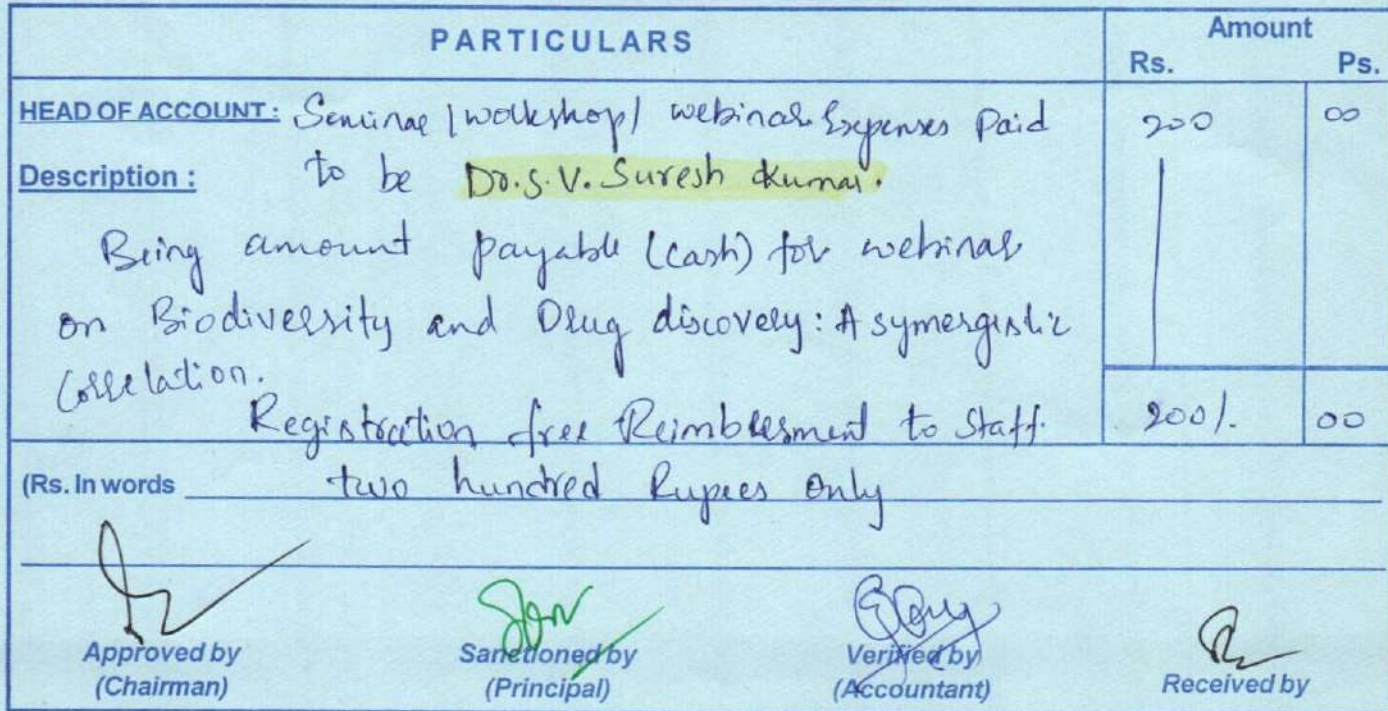 PARTICULARS
Amount
Rs. Ps.
HEAD OF ACCOUNT: Seminar / workshop / webinar Expenses Paid 200 00
Description: to be Dr. S. V. Suresh Kumar.
Being amount payable (Cash) for webinar
on Biodiversity and Drug discovery: A symergistic
Correlation.
Registration free Reimblesment to Staff. 200/. 00
(Rs. In words two hundred Rupees Only
Approved by Sanctioned by Verified by Received by
(Chairman) (Principal) (Accountant)